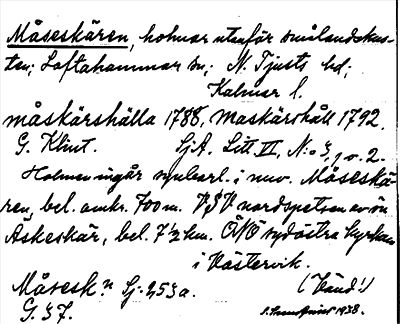 Måseskären, holmar utanför smålandskus-
ten; Loftahammar sn; N. Tjusts hd;
Kalmar l.
måskärshälla 1788, maskärshåll 1792.
G. Klint. Sj.A. Litt VI, N:o 3, 1 o. 2.
Holmen ingår synbarl. i nuv. Måseskä-
ren, bel. omkr. 700 m. VSV nordspetsen av ön
Äskeskär, bel. 7½ km. ÖNÖ sydöstra
i Västervik.
Måsesk:n Sj. 253 a. (Vänd!)
G. 37. 1938.